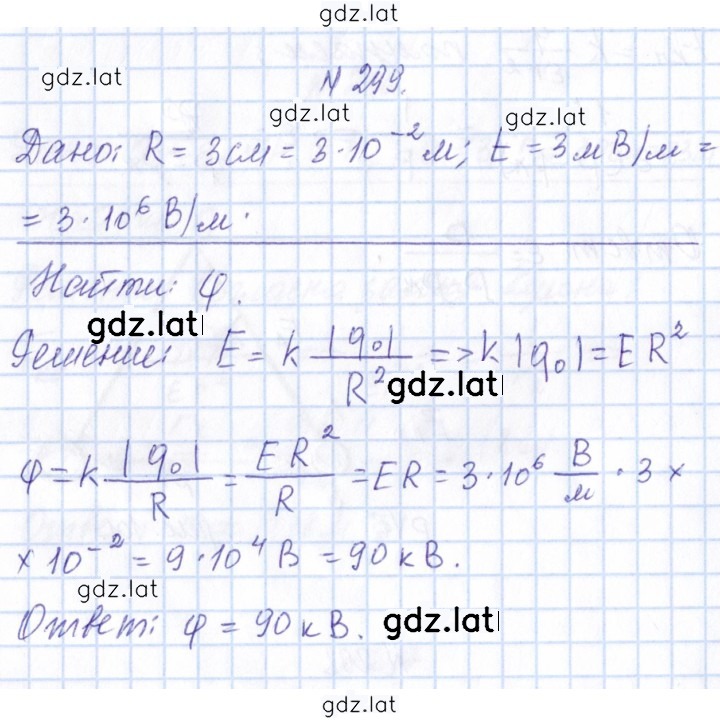 gdz.lat
gdz.lat
N 299.
gdz.lat gdz.lat
Дано: R = 3см = 3·10⁻² м; E = 3мВ/м =
= 3·10⁶ В/м.
Найти: φ.
gdz.lat
Решение: E = k |q₀|/R² => k|q₀| = ER²
gdz.lat
φ = k |q₀|/R = ER²/R = ER = 3·10⁶ В/м · 3 ×
× 10⁻² = 9·10⁴ В = 90 кВ.
gdz.lat
Ответ: φ = 90 кВ.
gdz.lat
gdz.lat